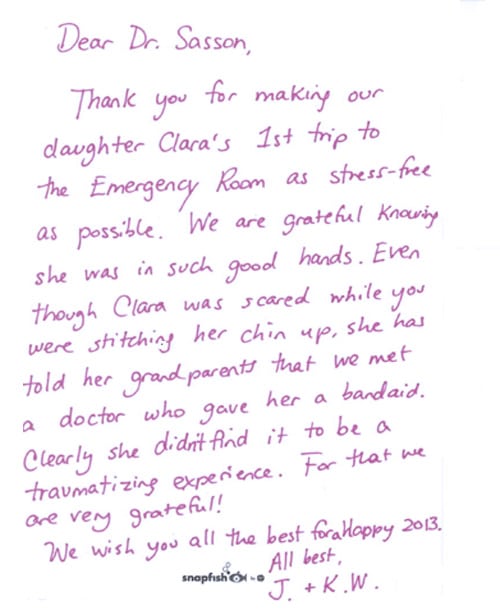 Dear Dr. Sasson,
Thank you for making our
daughter Clara's 1st trip to
the Emergency Room as stress-free
as possible. We are grateful knowing
she was in such good hands. Even
though Clara was scared while you
were stitching her chin up, she has
told her grandparents that we met
a doctor who gave her a bandaid.
Clearly she didn't find it to be a
traumatizing experience. For that we
are very grateful!
We wish you all the best for a Happy 2013.
All best,
snapfish
J. + K.W.